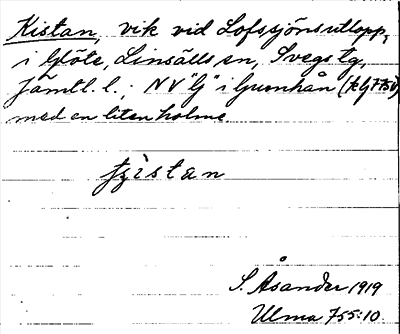 Kistan, vik vid Lofssjöns utlopp,
i Glöte, Linsälls sn, Svegs tg,
Jämtl. l.; NV "lj" i Gumhån
med en liten holme.
S. Åsander 1919
Ulma 755:10.